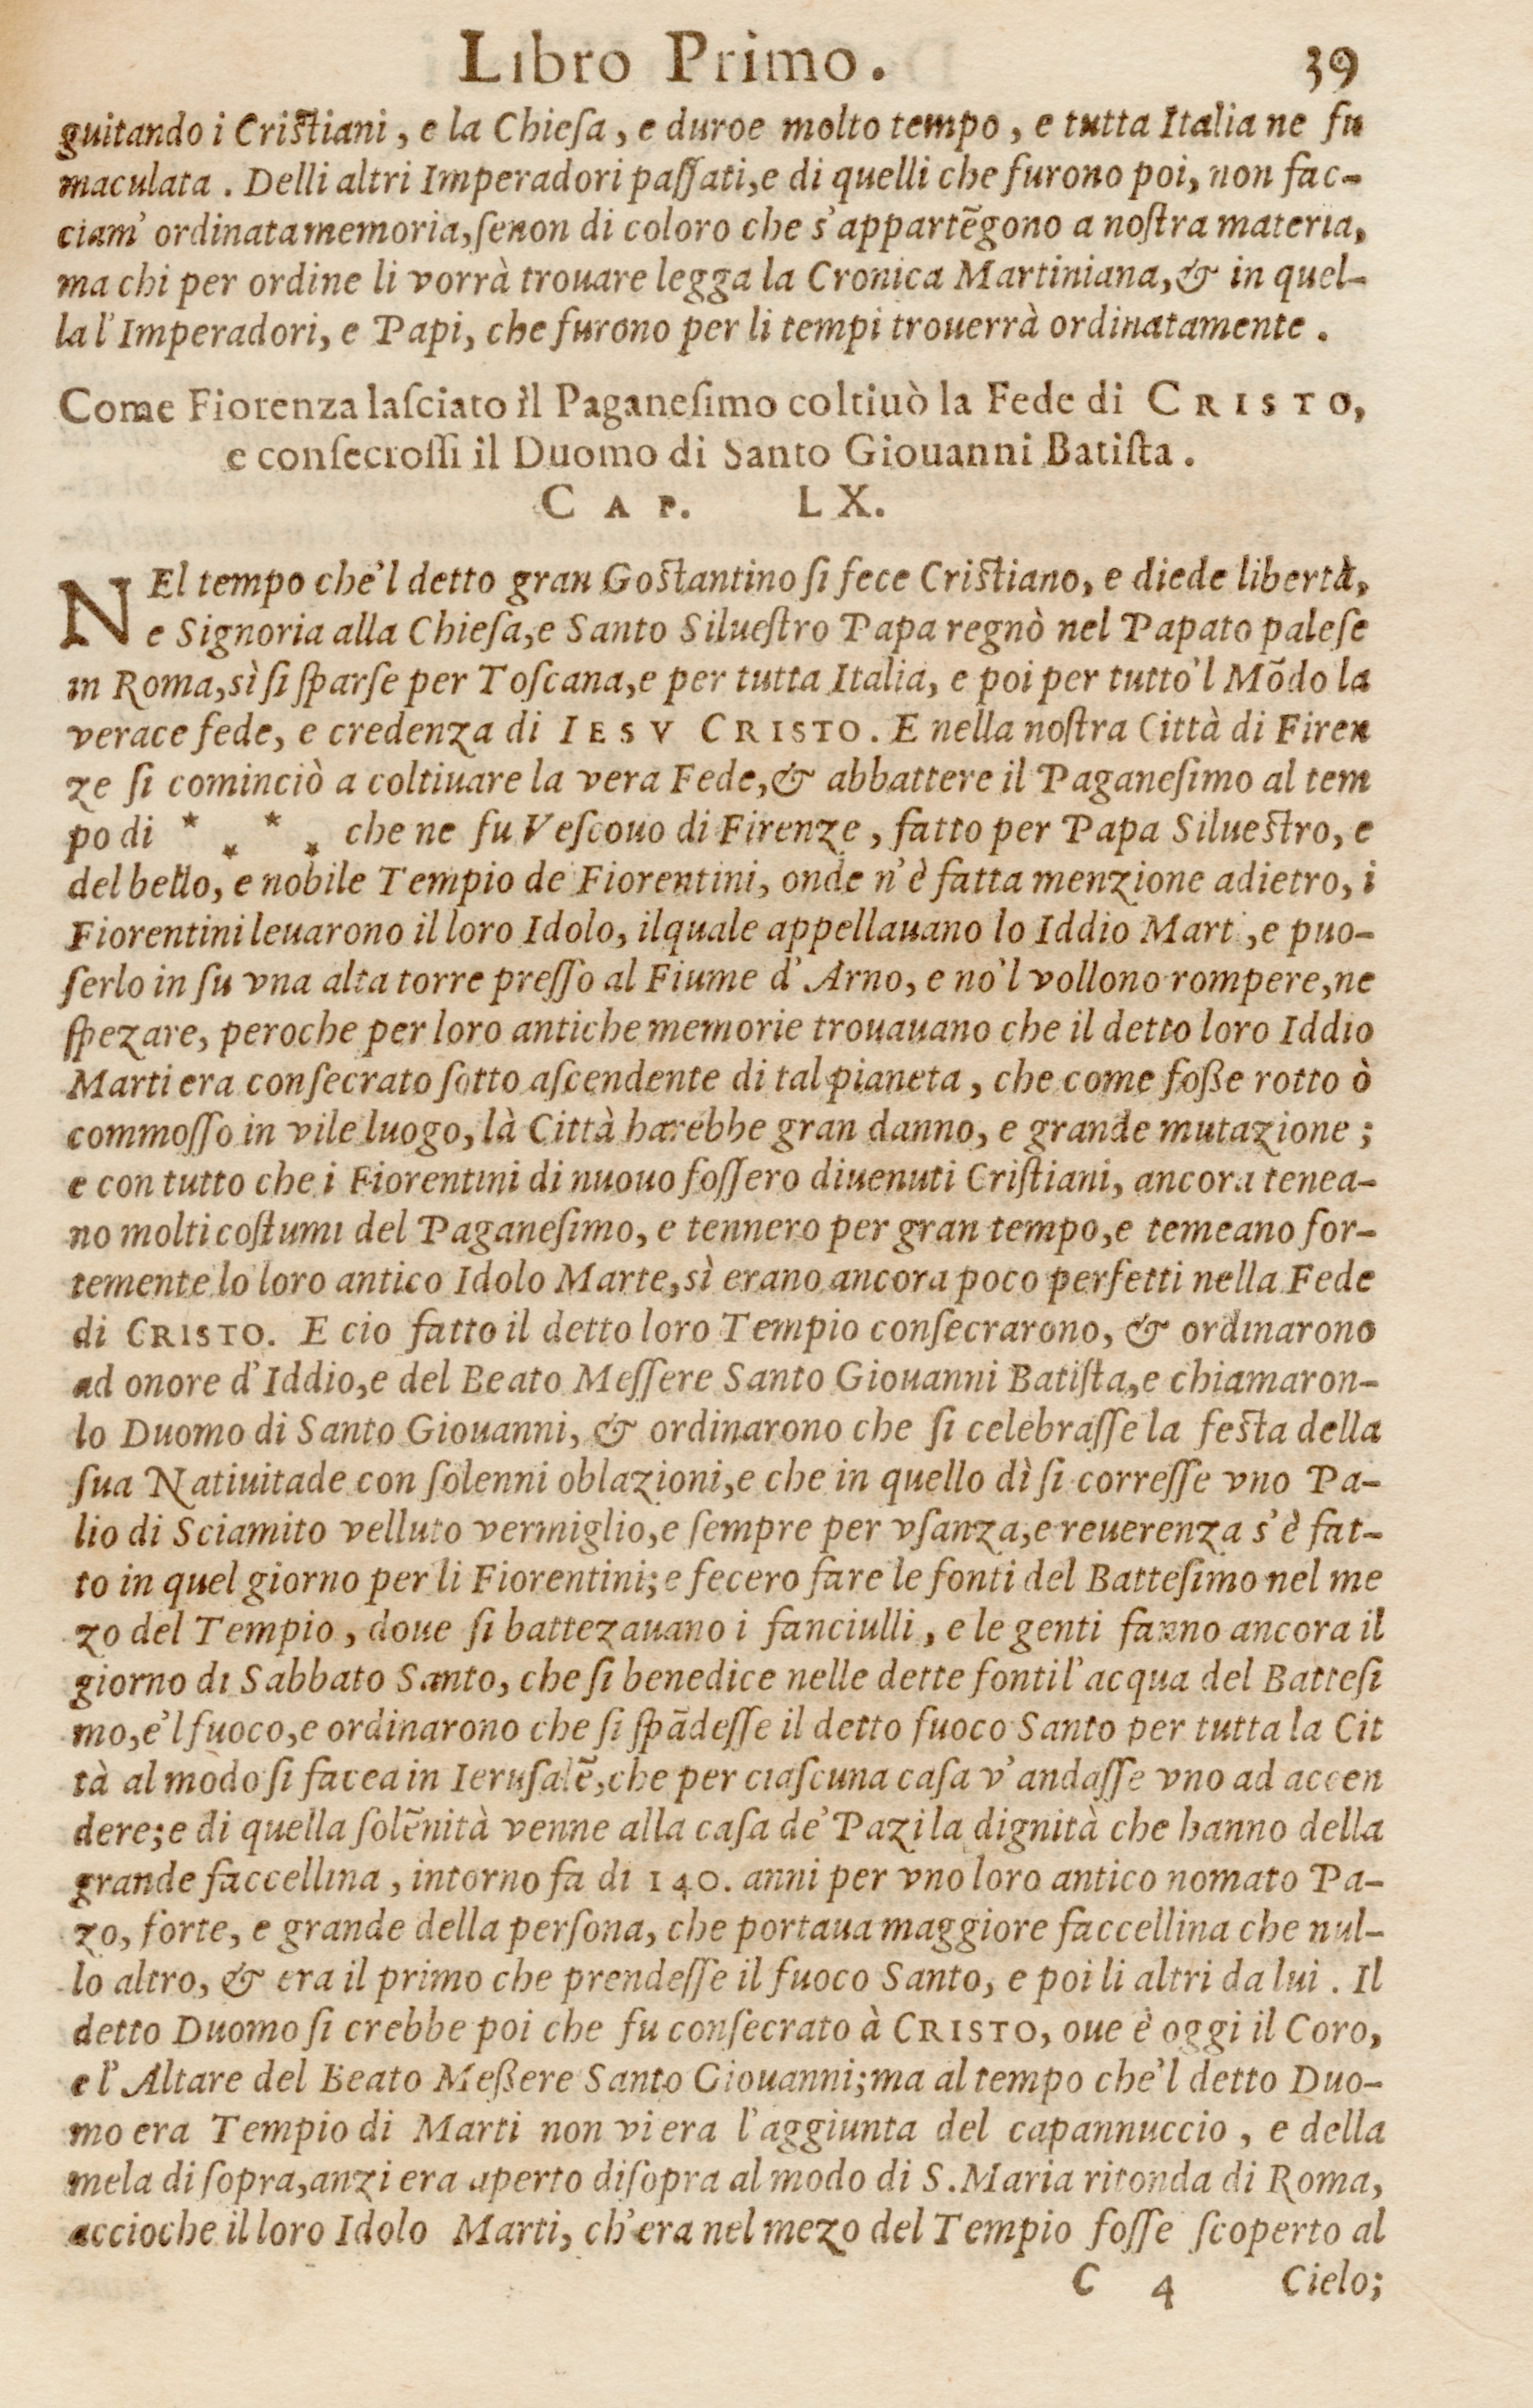 Libro Primo. 39
guitando i Criſtiani, e la Chieſa, e duroe molto tempo, e tutta Italia ne fu
maculata. Delli altri Imperadori paſſati, e di quelli che furono poi, non fac-
ciam' ordinata memoria, ſenon di coloro che s'appartẽgono a noſtra materia,
ma chi per ordine li vorrà trouare legga la Cronica Martiniana, & in quel-
la l'Imperadori, e Papi, che furono per li tempi trouerrà ordinatamente.
Come Fiorenza laſciato il Paganeſimo coltiuò la Fede di CRISTO,
e conſecroſſi il Duomo di Santo Giouanni Batiſta.
CAP. LX.
NEl tempo che'l detto gran Goſtantino ſi fece Criſtiano, e diede libertà,
e Signoria alla Chieſa, e Santo Silueſtro Papa regnò nel Papato paleſe
in Roma, sì ſi ſparſe per Toſcana, e per tutta Italia, e poi per tutto'l Mõdo la
verace fede, e credenza di IESV CRISTO. E nella noſtra Città di Firen
ze ſi cominciò a coltiuare la vera Fede, & abbattere il Paganeſimo al tem
po di * * * * che ne fu Veſcouo di Firenze, fatto per Papa Silueſtro, e
del bello, e nobile Tempio de Fiorentini, onde n'è fatta menzione adietro, i
Fiorentini leuarono il loro Idolo, ilquale appellauano lo Iddio Mart, e puo-
ſerlo in ſu vna alta torre preſſo al Fiume d'Arno, e no'l vollono rompere, ne
ſpezare, peroche per loro antiche memorie trouauano che il detto loro Iddio
Marti era conſecrato ſotto aſcendente di tal pianeta, che come foße rotto ò
commoſſo in vile luogo, là Città harebbe gran danno, e grande mutazione;
e con tutto che i Fiorentini di nuouo foſſero diuenuti Criſtiani, ancora tenea-
no molti coſtumi del Paganeſimo, e tennero per gran tempo, e temeano for-
temente lo loro antico Idolo Marte, sì erano ancora poco perfetti nella Fede
di CRISTO. E cio fatto il detto loro Tempio conſecrarono, & ordinarono
ad onore d'Iddio, e del Beato Meſſere Santo Giouanni Batiſta, e chiamaron-
lo Duomo di Santo Giouanni, & ordinarono che ſi celebraſſe la feſta della
ſua Natiuitade con ſolenni oblazioni, e che in quello dì ſi correſſe vno Pa-
lio di Sciamito velluto vermiglio, e ſempre per vſanza, e reuerenza s'è fat-
to in quel giorno per li Fiorentini; e fecero fare le fonti del Batteſimo nel me
zo del Tempio, doue ſi battezauano i fanciulli, e le genti fanno ancora il
giorno di Sabbato Santo, che ſi benedice nelle dette fonti l'acqua del Batteſi
mo, e'l fuoco, e ordinarono che ſi ſpãdeſſe il detto fuoco Santo per tutta la Cit
tà al modo ſi facea in Ieruſalẽ, che per ciaſcuna caſa v'andaſſe vno ad accen
dere; e di quella ſolẽnità venne alla caſa de'Pazi la dignità che hanno della
grande faccellina, intorno fa di 140. anni per vno loro antico nomato Pa-
zo, forte, e grande della perſona, che portaua maggiore faccellina che nul-
lo altro, & era il primo che prendeſſe il fuoco Santo, e poi li altri da lui. Il
detto Duomo ſi crebbe poi che fu conſecrato à CRISTO, oue è oggi il Coro,
e l'Altare del Beato Meßere Santo Giouanni; ma al tempo che'l detto Duo-
mo era Tempio di Marti non vi era l'aggiunta del capannuccio, e della
mela di ſopra, anzi era aperto diſopra al modo di S. Maria ritonda di Roma,
accioche il loro Idolo Marti, ch'era nel mezo del Tempio foſſe ſcoperto al
C 4 Cielo;